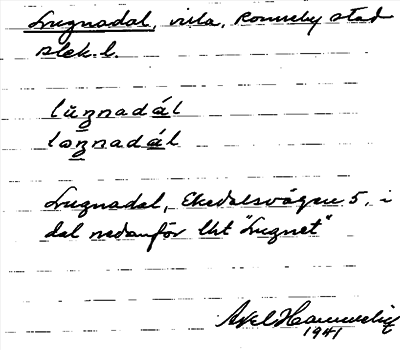 Lugnadal, villa, Ronneby stad
Blek. l.
lŭgnadál
lognadál
Lugnadal, Ekedalsvägen 5, i
dal nedanför lht "Lugnet"
Axel Hammelig
1941